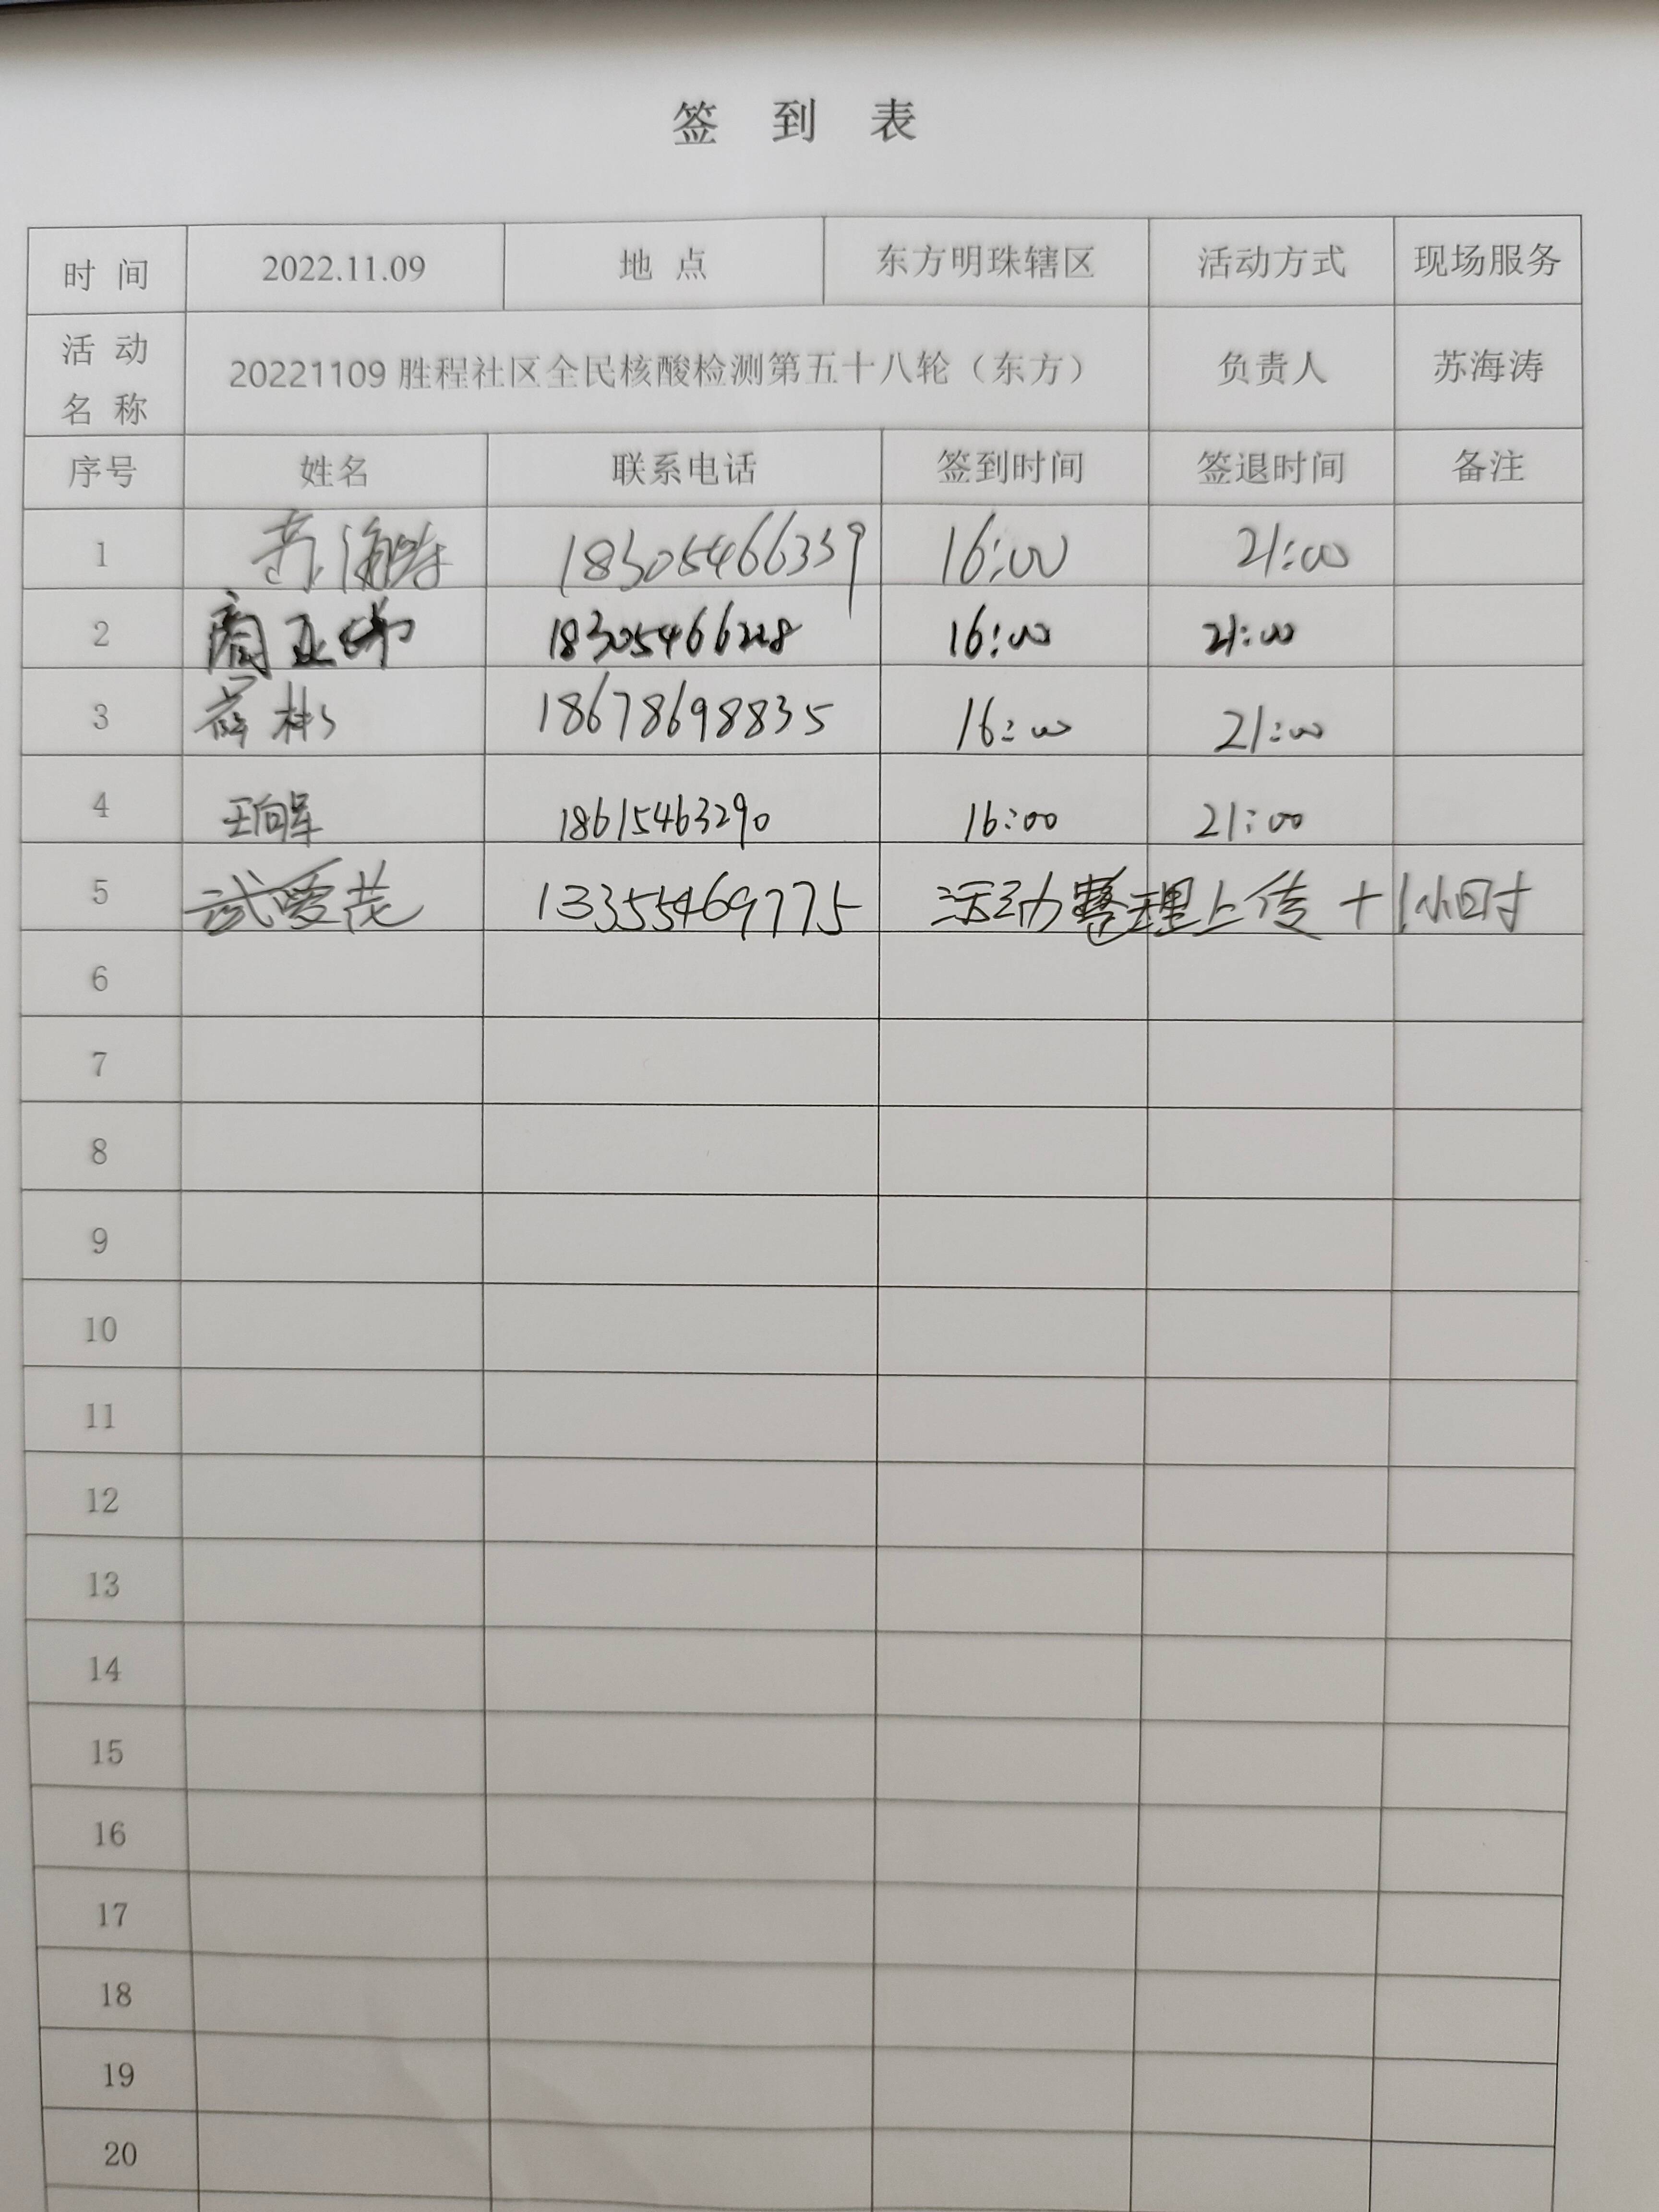 签 到 表
时 间 2022.11.09 地 点 东方明珠辖区 活动方式 现场服务
活 动 名 称 20221109 胜程社区全民核酸检测第五十八轮（东方） 负责人 苏海涛
序号 姓名 联系电话 签到时间 签退时间 备注
1 苏海涛 18305466339 16:00 21:00
2 商亚娣 18305466228 16:00 21:00
3 薛彬 18678698835 16:00 21:00
4 王向军 18615463290 16:00 21:00
5 武爱花 13355469775 活动整理上传+1小时
6
7
8
9
10
11
12
13
14
15
16
17
18
19
20